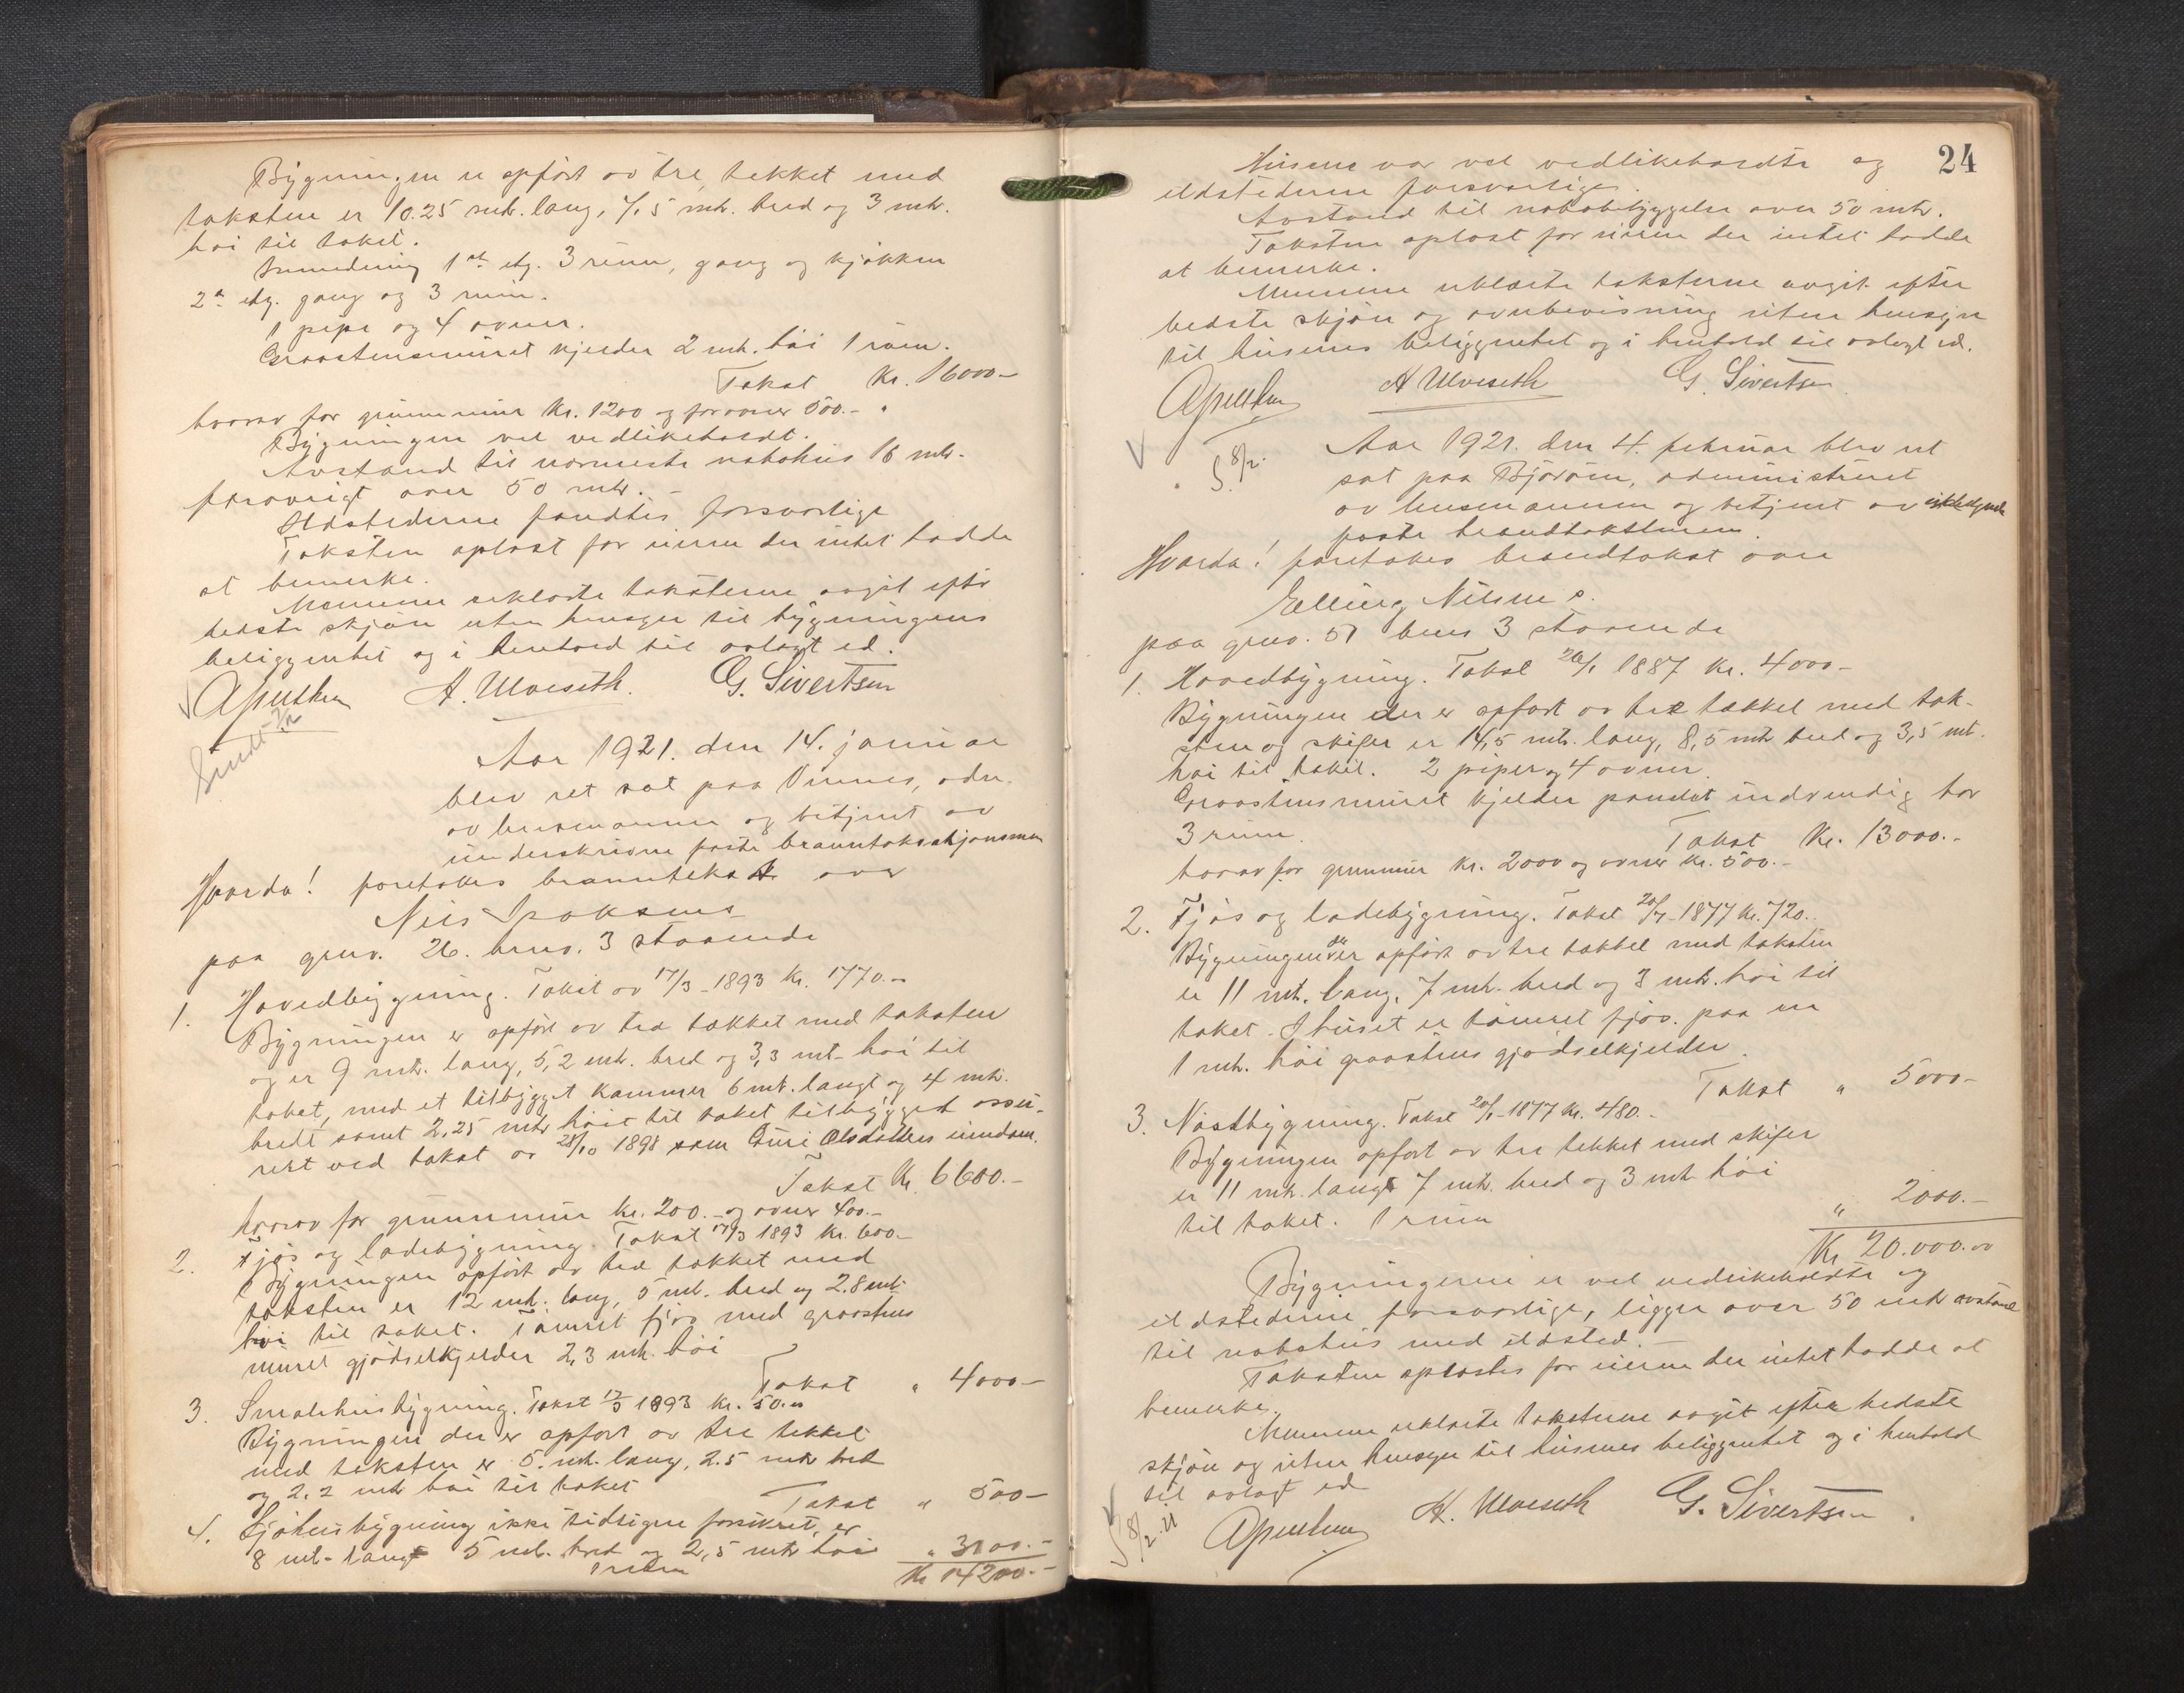 Bygningen er opført av tre, tekket med
taksten er 10.25 mtr. lang, 7,5 mtr. bred og 3 mtr.
høi til taket.
Inredning 1ste etg. 3 rum, gang og kjøkken
2n etg. gang og 3 rum.
1 pipe og 4 ovner.
Graastensmuret kjelder 2 mtr. høi 1 rum.
Takst Kr. 16000–
hvorav for grunnmur Kr. 1200 og for ovner 500.–
Bygningen vel vedlikeholdt.
Avstand til nærmeste nabohus 16 mtr.
forøvrigt over 50 mtr.
Ildstederne fandtes forsvarlige
Taksten oplæst for eieren der intet hadde
at bemerke.
Mennene erklærte taksterne avgit efter
bedste skjøn uten hensyn til bygningens
beliggenhet og i henhold til avlagt ed.
A. Ulveseth. G. Sivertsen
Aar 1921. den 14. januar
blev ret sat paa Vinnes, adm.
av lensmannen og betjent av
underskrevne faste branntakstskjønsmen
Hvorda! foretokes branntakst over
Nils Isaksens
paa gnr. 26. brno. 3 staaende
1. Hovedbygning. Takst av 17/3 – 1893 Kr. 1770.–
Bygningen er opført av tre tækket med taksten
og er 9 mtr. lang, 5,2 mtr. bred og 3,3 mtr høi til
taket, med et tilbygget kammer 6 mtr. langt og 4 mtr.
bredt samt 2,25 mtr høit til taket tilbygget assu-
rert ved takst av 28/10 1898 som Guri Olsdatters eiendom.
Takst Kr. 6600.–
hvorav for grunnmur kr. 200.– og ovner 400.–
2. Fjøs og ladebygning. Takst 17/3 1893 Kr. 600.–
Bygningen opført av tre tækket med
taksten er 12 mtr. lang, 5 mtr. bred og 2.8 mtr
høi til taket. Tømret fjøs med graastens
muret gjødselkjelder 2,3 mtr. høi
Takst " 4000–
3. Smalehusbygning. Takst 17/3 1893 Kr. 50.–
Bygningen der er opført av tre tekket
med taksten er 5. mtr. lang, 2.5 mtr bred
og 2,2 mtr høi til taket
Takst " 500–
4. Sjøhusbygning ikke tidligere forsikret, er
8 mtr. langt 5 mtr. bred og 2,5 mtr høi " 3100.–
1 rum Kr 14200.–
24
Husene var vel vedlikeholdte og
ildstederne forsvarlige.
Avstand til nabobebyggelse over 50 mtr.
Taksten oplæst for eieren der intet hadde
at bemerke.
Mennene erklærte taksterne avgit efter
bedste skjøn og overbevisning uten hensyn
til husenes beliggenhet og i henhold til avlagt ed.
A Ulveseth G. Sivertsen
Aar 1921. den 4. februar blev ret
sat paa Bjørøen, administreret
av lensmannen og betjent av
faste brandtakstmenn.
Hvorda! foretokes brandtakst over
Elling Nilsens.
paa gnr. 51 brno 3 staaende
1. Hovedbygning. Takst 20/1 1887 Kr. 4000–
Bygningen der er opført av tre tækket med tak-
sten og skifer er 14,5 mtr. lang, 8,5 mtr bred og 3,5 mtr.
høi til taket. 2 piper og 4 ovner.
Graastensmuret kjelder pandet indvendig har
3 rum.
Takst Kr. 13000.–
hvorav for grunnmur kr. 2000 og ovner kr. 500.–
2. Fjøs og ladebygning. Takst 20/1 – 1877 Kr. 720.
Bygningen der er opført av tre tækket med taksten
er 11 mtr. lang, 7 mtr. bred og 3 mtr. høi til
taket. I huset er tømret fjøs. paa en
1 mtr. høi graastens gjødselkjelder.
Takst " 5000–
3. Nøstbygning. Takst 20/1 – 1877 Kr. 480.–
Bygningen opført av tre tekket med skifer
er 11 mtr. lang 7 mtr. bred og 3 mtr høi
til taket. 1 rum
" 2000.–
Kr. 20.000.00
Bygningerne er vel vedlikeholdte og
ildstederne forsvarlige, ligger over 50 mtr avstand
til nabohus med ildsted.–
Taksten oplæstes for eieren der intet hadde at
bemerke.
Mennene erklærte taksterne avgit efter bedste
skjøn og uten hensyn til husenes beliggenhet og i henhold
til avlagt ed
A. Ulveseth G. Sivertsen